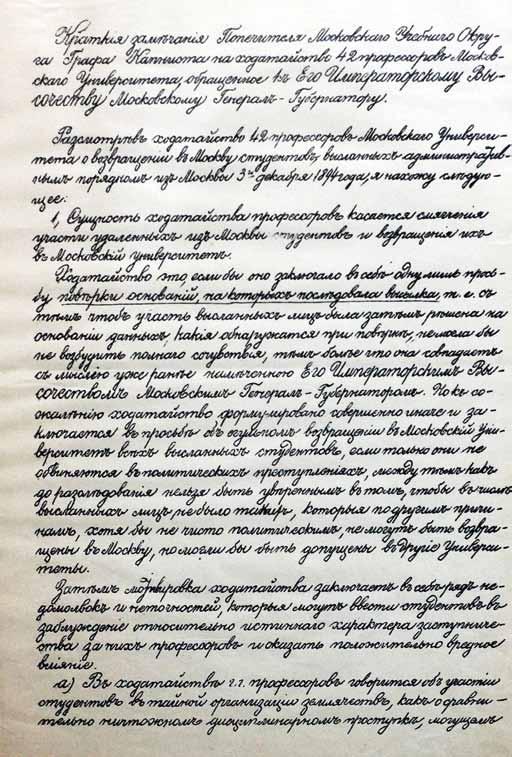 Краткія замѣчанія Попечителя Московскаго Учебнаго Окру-
га Графа Капниста на ходатайство 42 профессоровъ Москов-
скаго Университета, обращенное къ Его Императорскому Вы-
сочеству Московскому Генералъ-Губернатору.
Разсмотрѣвъ ходатайство 42 профессоровъ Московскаго Универси-
тета о возвращеніи въ Москву студентовъ, высланныхъ административ-
нымъ порядкомъ изъ Москвы 3го декабря 1894 года, я нахожу слѣдую-
щее:
1, Сущность ходатайства профессоровъ касается смягченія
участи удаленныхъ изъ Москвы студентовъ и возвращенія ихъ
въ Московскій университетъ.
Ходатайство это, если бы оно заключало въ себѣ одну лишь прось-
бу повѣрки основаній, на которыхъ послѣдовала высылка, т. е. съ
тѣмъ чтобъ участь высланныхъ лицъ была затѣмъ рѣшена на
основаніи данныхъ, какія обнаружатся при повѣркѣ, не могла бы
не возбудить полнаго сочувствія, тѣмъ болѣе что она совпадаетъ
съ мыслею уже ранѣе намѣченною Его Императорскимъ Вы-
сочествомъ Московскимъ Генералъ-Губернаторомъ. Но къ со-
жалѣнію ходатайство формулировано совершенно иначе и за-
ключается въ просьбѣ объ огульномъ возвращеніи въ Московскій Уни-
верситетъ всѣхъ высланныхъ студентовъ, если только они не
обвиняются въ политическихъ преступленіяхъ, между тѣмъ какъ
до разслѣдованія нельзя быть увѣреннымъ въ томъ, чтобы въ числѣ
высланныхъ лицъ не было такихъ, которыя по другимъ причи-
намъ, хотя бы не чисто политическимъ, не могутъ быть возвра-
щены въ Москву, но могли бы быть допущены въ другіе Универси-
теты.
Затѣмъ мотивировка ходатайства заключаетъ въ себѣ рядъ не-
домолвокъ и неточностей, которыя могутъ ввести студентовъ въ
заблужденіе относительно истиннаго характера заступниче-
ства за нихъ профессоровъ и оказать положительно вредное
вліяніе.
а) Въ ходатайствѣ г.г. профессоровъ говорится объ участіи
студентовъ въ тайной организаціи землячествъ, какъ о сравни-
тельно ничтожномъ дисциплинарномъ проступкѣ, могущемъ